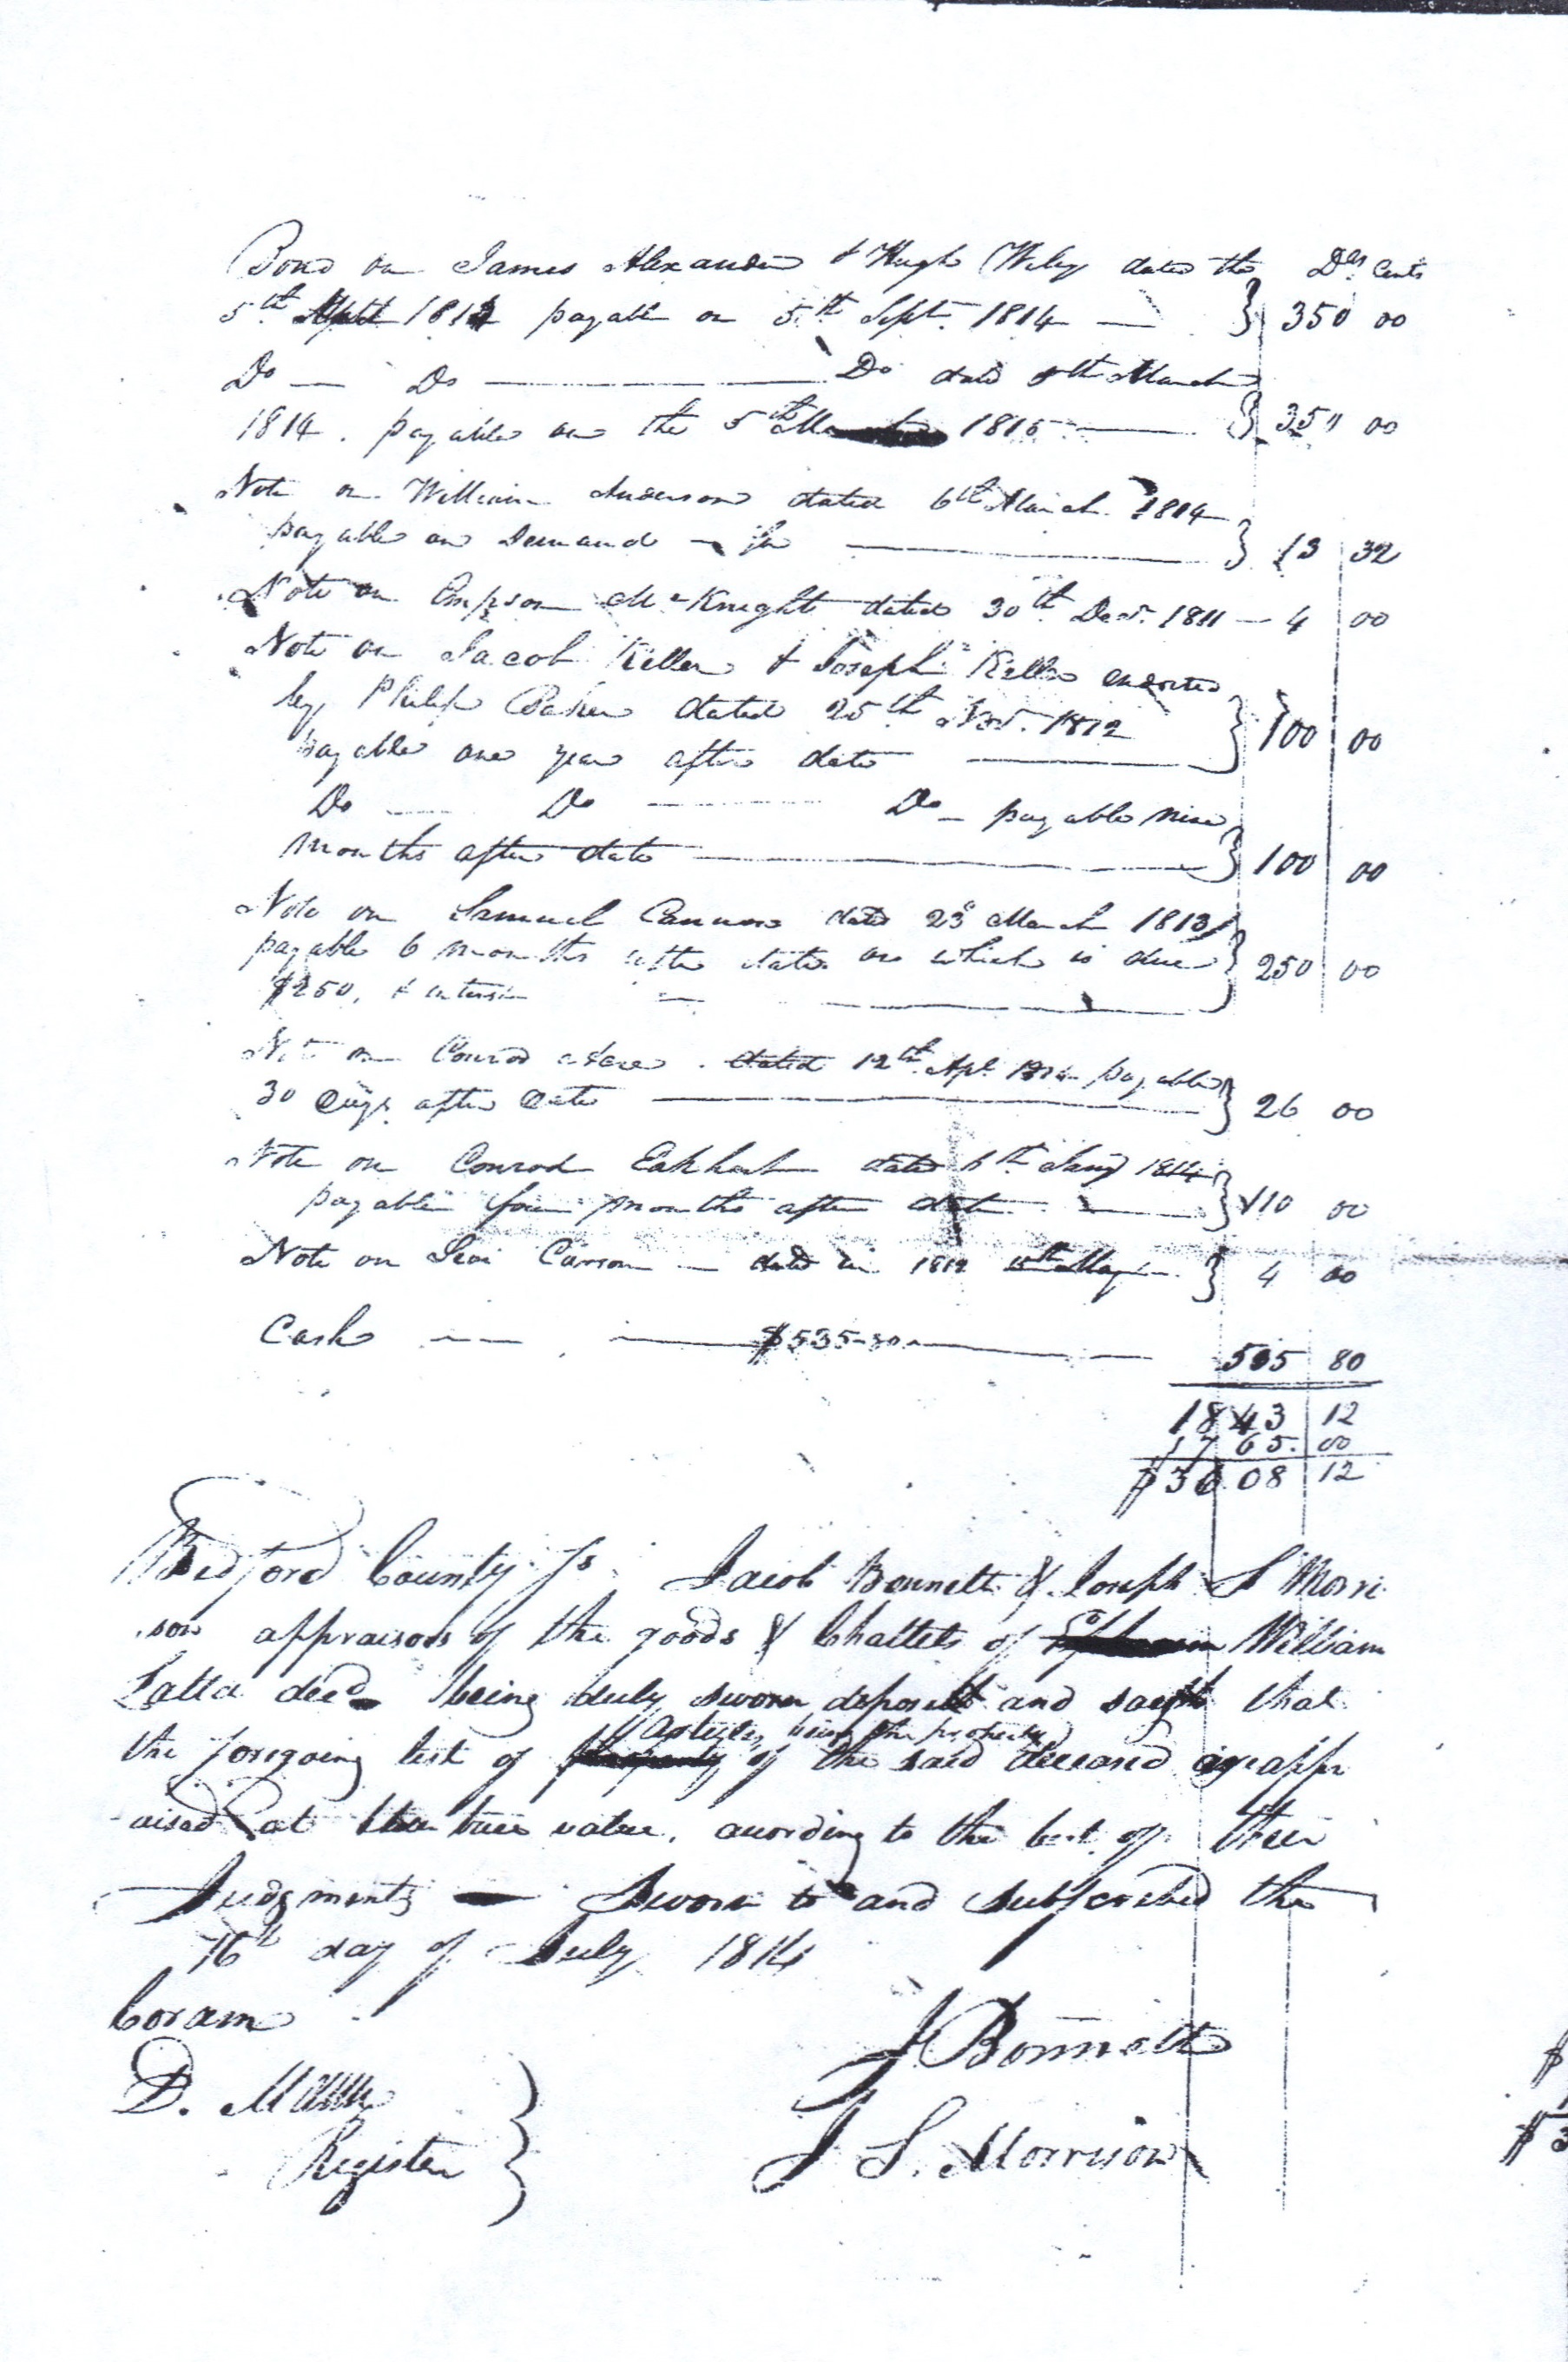 Bond on James Alexander & Hugh Wiley dated the Dls Cents
5th 1812 payable on 5th Sept. 1814 — } 350 00
Do — Do — Do dated 5th March
1814. payable on the 5th 1815 — } 350 00
Note on William Anderson dated 6th March 1814
payable on Demand — for — } 13 32
Note on Empson McKnight dated 30th Decr. 1811 — 4 00
Note on Jacob Keller & Joseph Keller endorsed
by Philip Baker dated 25th Novr. 1812
payable one year after date — } 100 00
Do — Do — Do — payable nine
months after date — } 100 00
Note on Samuel Cannon dated 23d March 1813
payable 6 months after date on which is due } 250 00
$250, & interest —
Note on Conrod . dated 12th Apl 1814 payable
30 Days after Date — } 26 00
Note on Conrod dated 6th Jany 1814
payable four months after date — } 110 00
Note on Levi Carson — dated in 1812 May — } 4 00
Cash — — $535-80 — 535 80
1843 12
1765. 00
$3608 12
Bedford County Ss. Jacob Bonnett & Joseph S Morri
son appraisors of the goods & Chattels of William
Latta decd being duly sworn deposeth and sayeth that
articles, being the property
the foregoing list of property of the said deceased are appr
-aised at the true value, according to the best of their
Judgments — Sworn to and subscribed the
16th day of July 1814
Coram
J Bonnett
D. Mann
Register }
J S. Morrison
$
$3